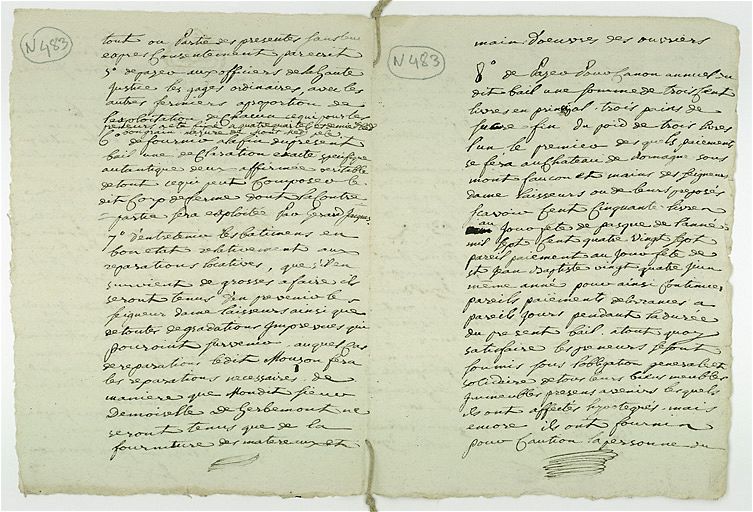 N 483
tout ou Partie des presentes sans leur
expres Consentement par ecrit
5° de payer aux officiers de la haute
Justice les gages ordinaires, avec les
autres fermiers aproportion de
l'exploitation de chacun ce qui pour les
preneurs a été
6° de fournir a la fin du present
bail une declaration exacte specifique
autantique deux affirmée veritable
de tout ce qui peut Composer le
dit Corp de ferme dont la Contre
partie sera exploitée Par Gerard Jacques
7° d'entretenir les batimens en
bon etat relativement aux
reparations locatives, que s'il en
survient de grosses a faire ils
seront tenus d'en prevenir le s
seigneur dame laisseurs ainsi que
de toutes degradations Imprevues qui
pouroint survenir. auquel cas
de reparations ledit Mouzon fera
les reparations necessaires. de
maniere que Mondit sieur
Demoiselle de herbemont ne
seront tenus que de la
fourniture des matereaux et
N 483
main d'oeuvres des ouvriers
8° de Payer Pour Canon annuel du
dit bail une somme de trois Cent
livres en principal trois pains de
sucre fin du poid de trois livres
l'un le premier des quels paiements
se fera au Chateau de Domagne sous
mont faucon et mains des seigneur
dame laisseurs ou de leurs preposés
scavoir Cent Cinquante livres
au Jour fête de pasque de l'année
mil sept Cent quatre vingt sept
pareil paiement au Jour fête de
st Jean Baptiste vingt quatre Juin
même année pour ainsi Continuer
pareils paiements de termes a
pareils Jours pendant la durée
du present bail. a tout quoy
satisfaire les preneurs se sont
soumis sous l'obligation generale et
solidaire de tous leurs biens meubles
Immeubles presens avenirs les quels
ils ont affectés hypotequés. mais
encore ils ont fourni
pour Caution la personne du